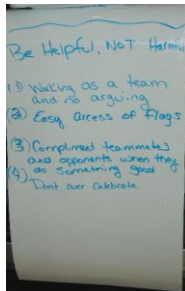 Be Helpful, NOT Harmful
(1) Working as a team
and no arguing
(2) Easy access of Flags
(3) Compliment teammates
and opponents when they
do something good
(4) Dont over Celebrate